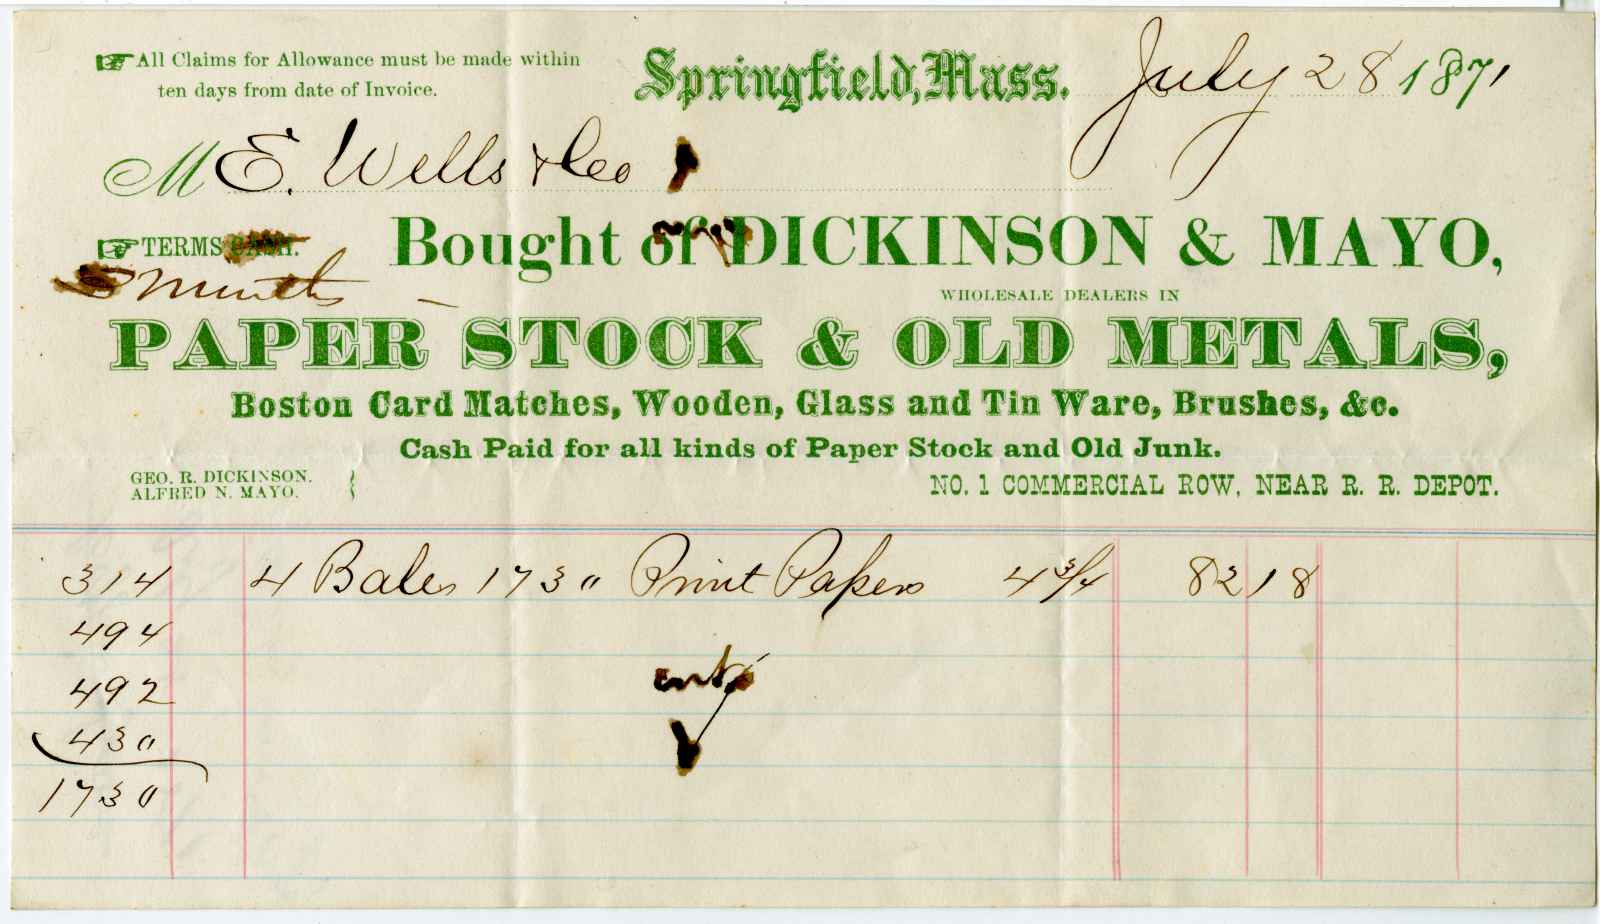 All Claims for Allowance must be made within
ten days from date of Invoice.
Springfield, Mass. July 28 1871
M E. Wells & Co
TERMS CASH.
3 Months
Bought of DICKINSON & MAYO,
WHOLESALE DEALERS IN
PAPER STOCK & OLD METALS,
Boston Card Matches, Wooden, Glass and Tin Ware, Brushes, &c.
Cash Paid for all kinds of Paper Stock and Old Junk.
GEO. R. DICKINSON.
ALFRED N. MAYO.
NO. 1 COMMERCIAL ROW, NEAR R. R. DEPOT.
314 4 Bales 1730 Print Papers 4 3/4 82 18
494
492
430
1730